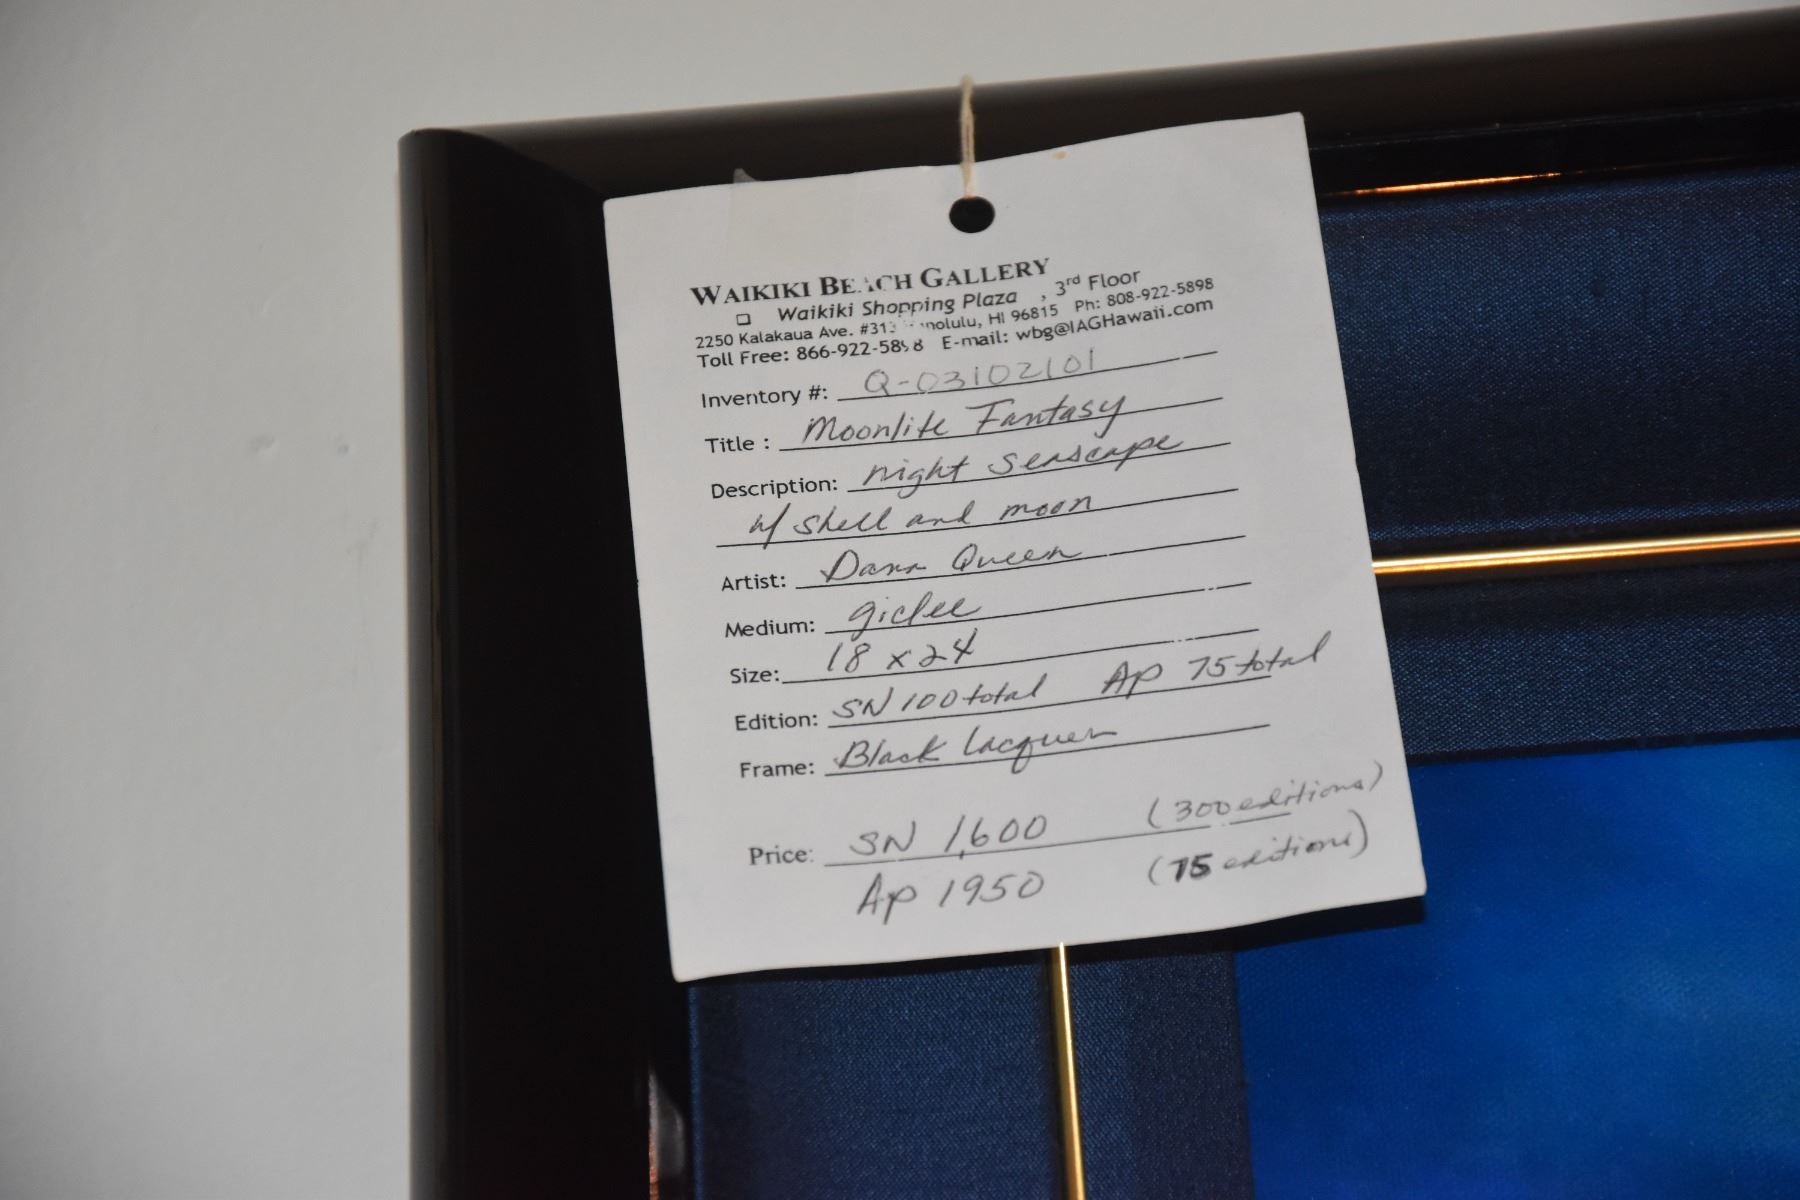 WAIKIKI BEACH GALLERY
Waikiki Shopping Plaza , 3rd Floor
2250 Kalakaua Ave. #313 Honolulu, HI 96815 Ph: 808-922-5898
Toll Free: 866-922-5898 E-mail: wbg@IAGHawaii.com
Inventory #: Q-03102101
Title : Moonlite Fantasy
Description: night seascape
w/ shell and moon
Artist: Dann Queen
Medium: giclee
Size: 18 x 24
Edition: SN 100 total AP 75 total
Frame: Black lacquer
Price: SN 1,600 (300 editions)
AP 1950 (75 editions)